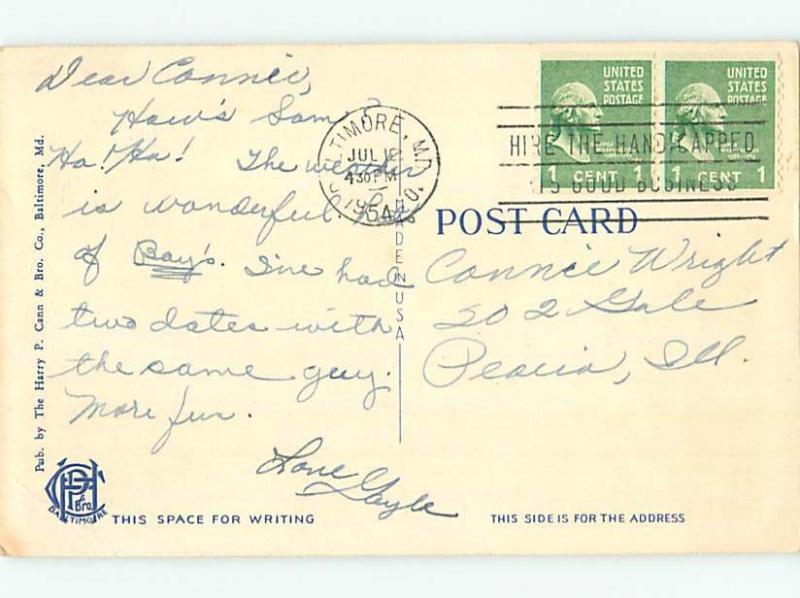 Dear Connie,
How's Sam?
Ha! Ha! The weather
is wonderful
of Boy's. I've had
two dates with
the same guy.
More fun.
Love Gayle
Pub. by The Harry P. Cann & Bro. Co., Baltimore, Md.
Bro.
BALTIMORE
THIS SPACE FOR WRITING
MADE IN USA
TIMORE, MD.
JUL 12
430 PM
1954
UNITED
STATES
POSTAGE
1 CENT 1
UNITED
STATES
POSTAGE
1 CENT 1
HIRE THE HANDICAPPED
ITS GOOD BUSINESS
POST CARD
Connie Wright
202 Gale
Peoria, Ill.
THIS SIDE IS FOR THE ADDRESS